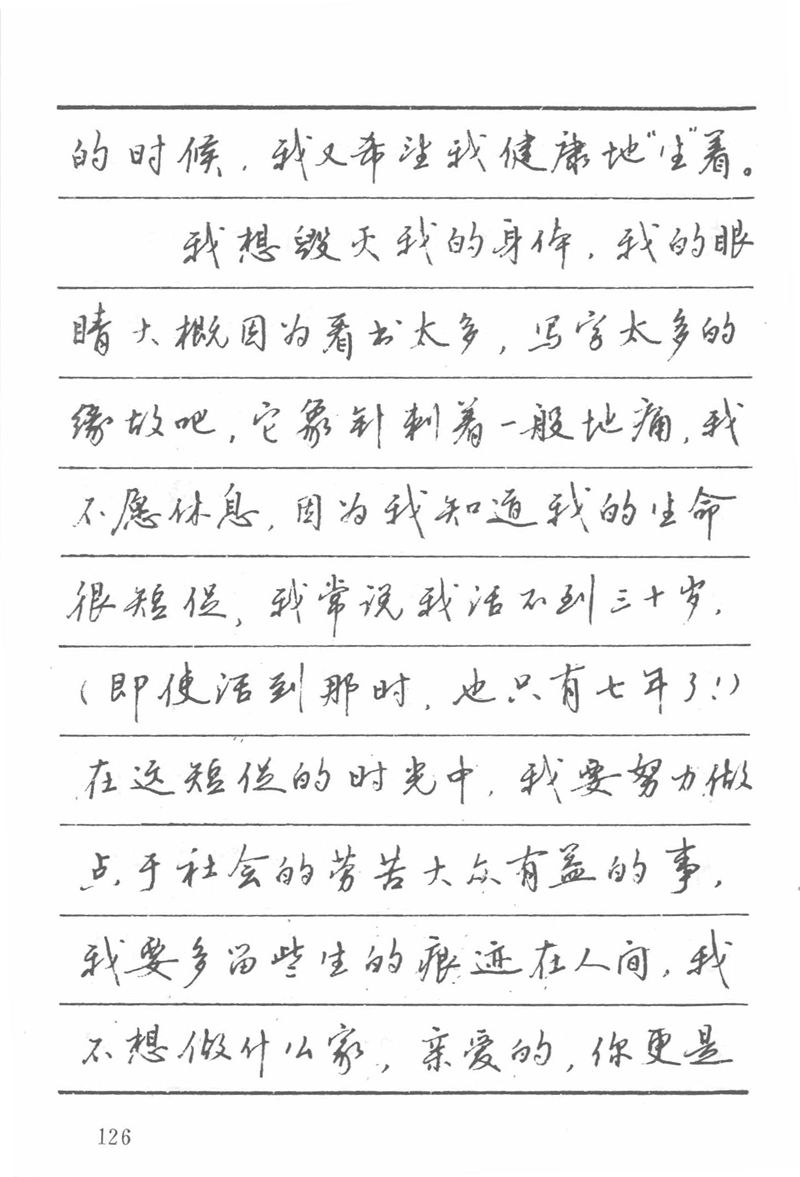 的时候，我又希望我健康地“生”着。
我想毁灭我的身体，我的眼
睛大概因为看书太多，写字太多的
缘故吧，它象针刺着一般地痛，我
不愿休息，因为我知道我的生命
很短促，我常说我活不到三十岁，
（即使活到那时，也只有七年了！）
在这短促的时光中，我要努力做
点于社会的劳苦大众有益的事，
我要多留些生的痕迹在人间，我
不想做什么家，亲爱的，你更是
126